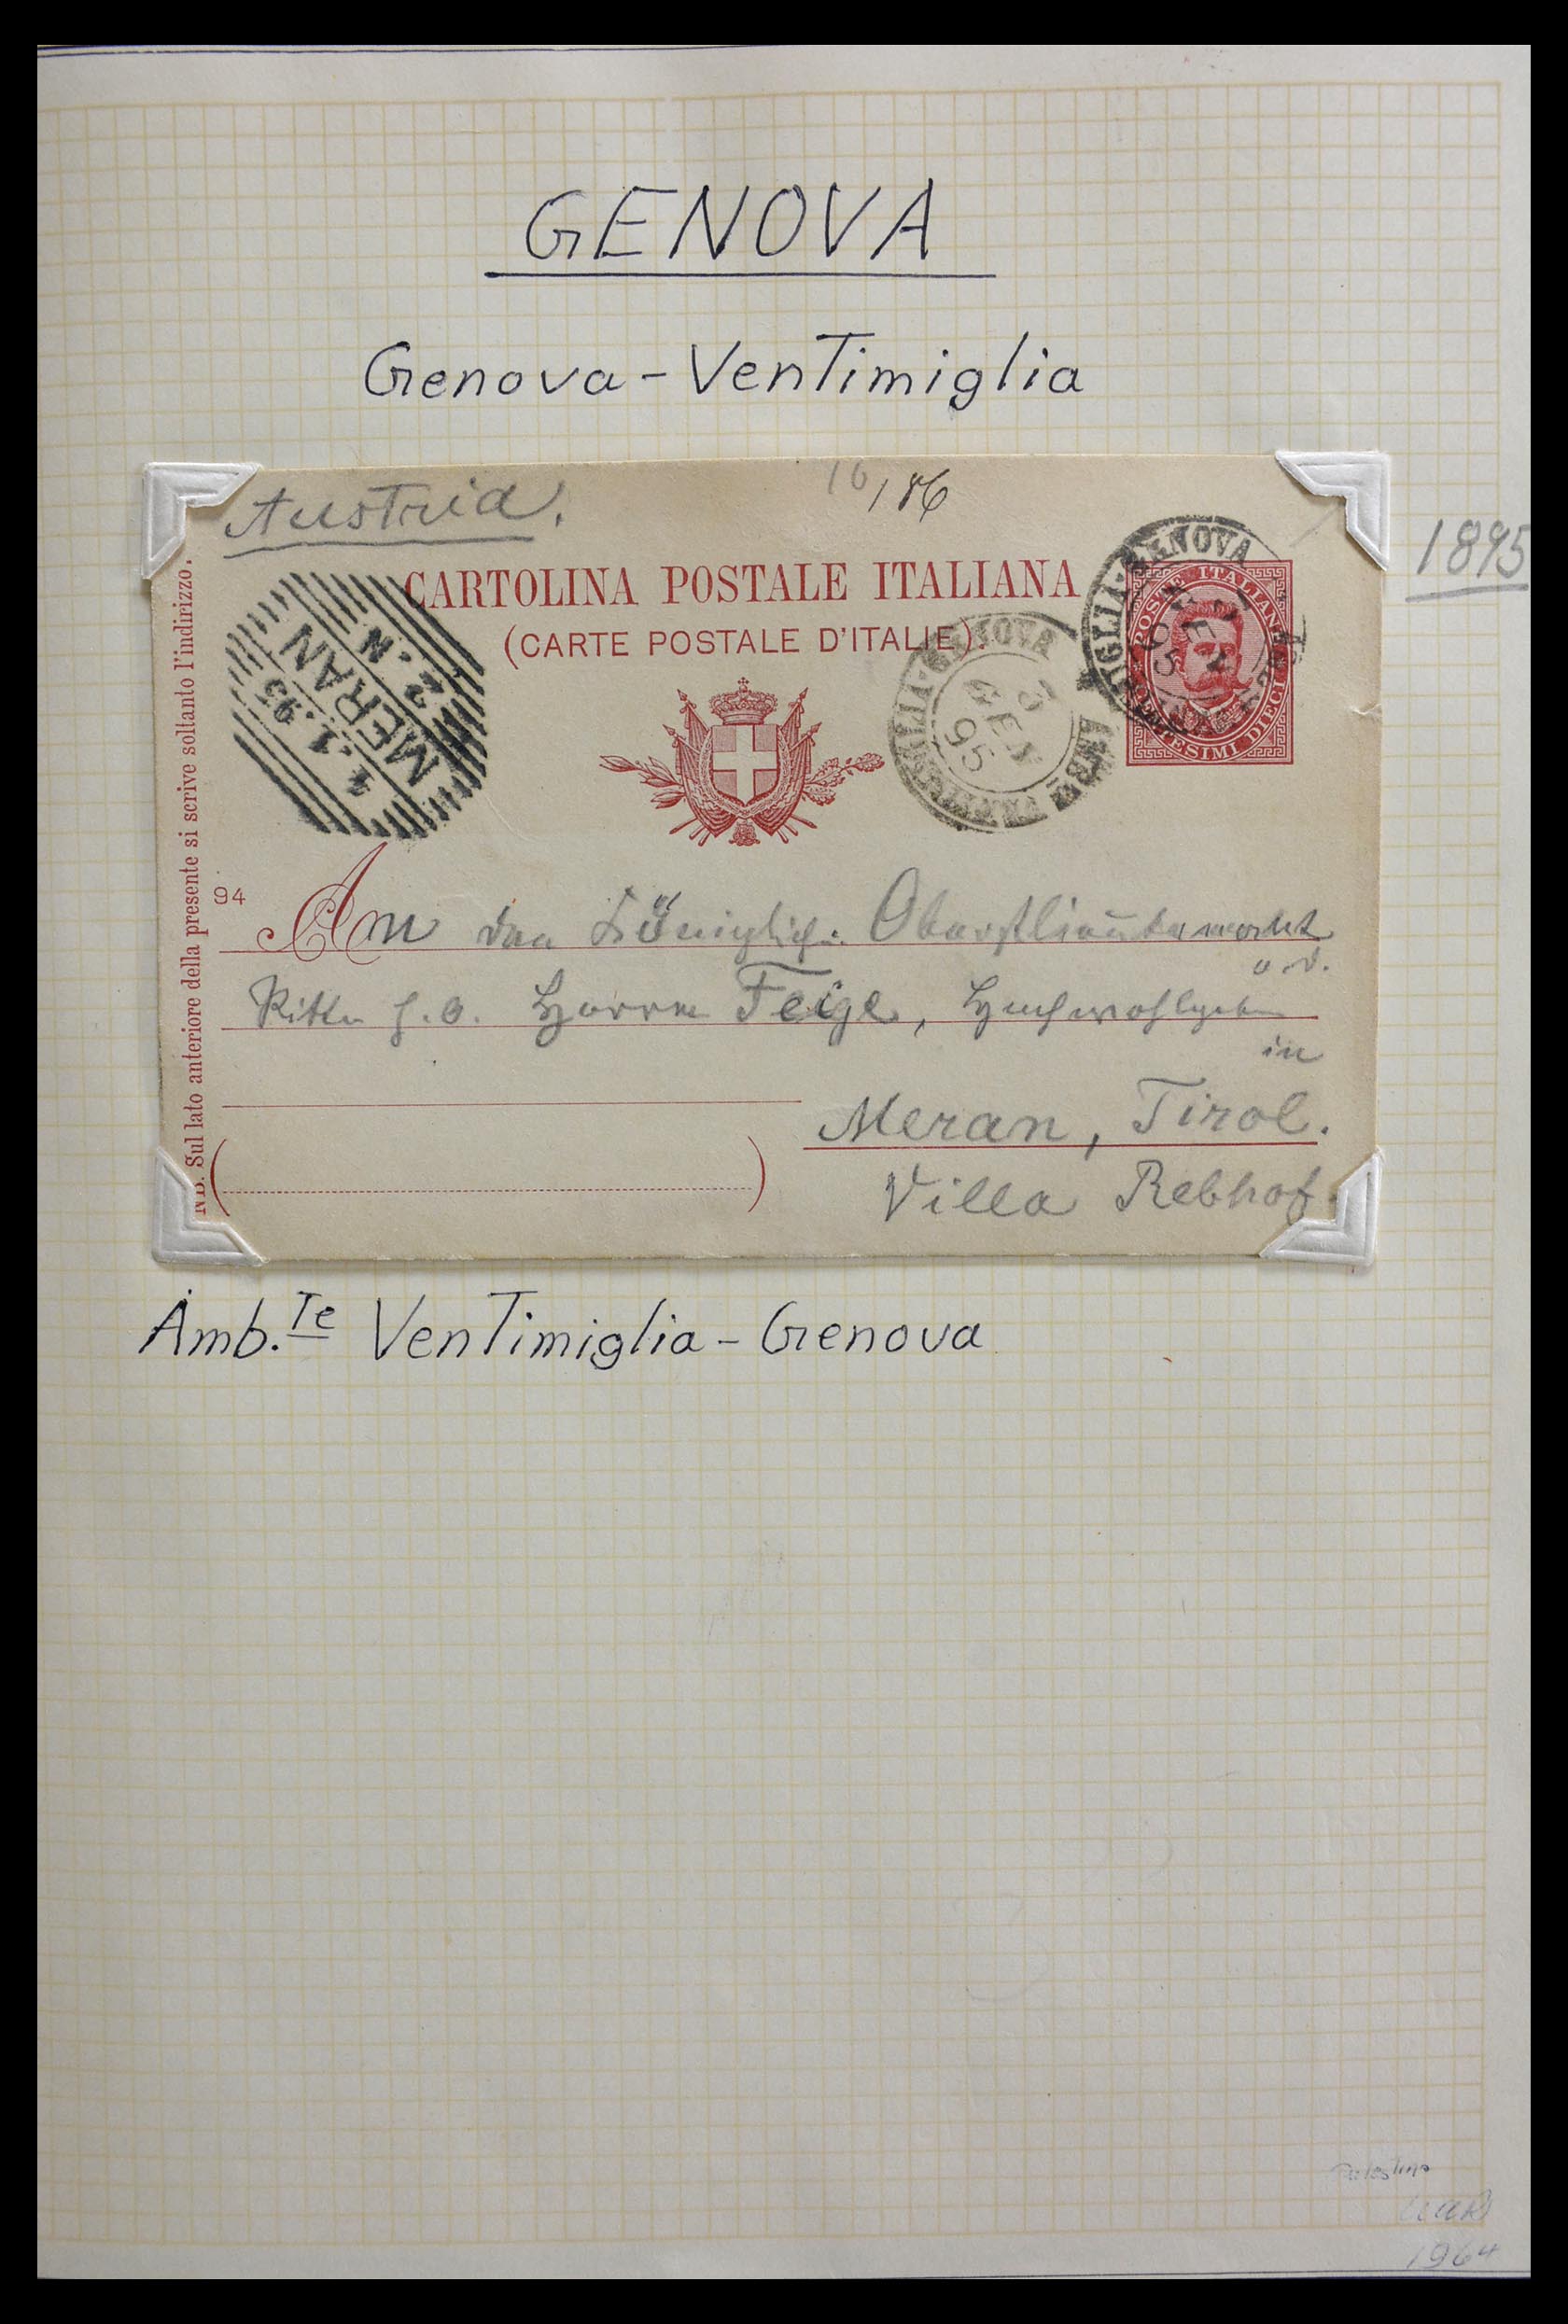 GENOVA
Genova-Ventimiglia
Austria.
/86
1895
CARTOLINA POSTALE ITALIANA
(CARTE POSTALE D'ITALIE).
VENTIMIGLIA-GENOVA
3 GEN 95
POSTE ITALIANE
CENTESIMI DIECI
VENTIMIGLIA-GENOVA AMB.TE
3 GEN 95
MERAN
4.1.95
2.N
NB. Sul lato anteriore della presente si scrive soltanto l'indirizzo.
94
An den Königlich. Oberstlieutenant
a. D.
Ritter Herrn Feige, Hochwohlgeboren
in
Meran, Tirol.
Villa Rebhof.
Amb.Te Ventimiglia-Genova
1964